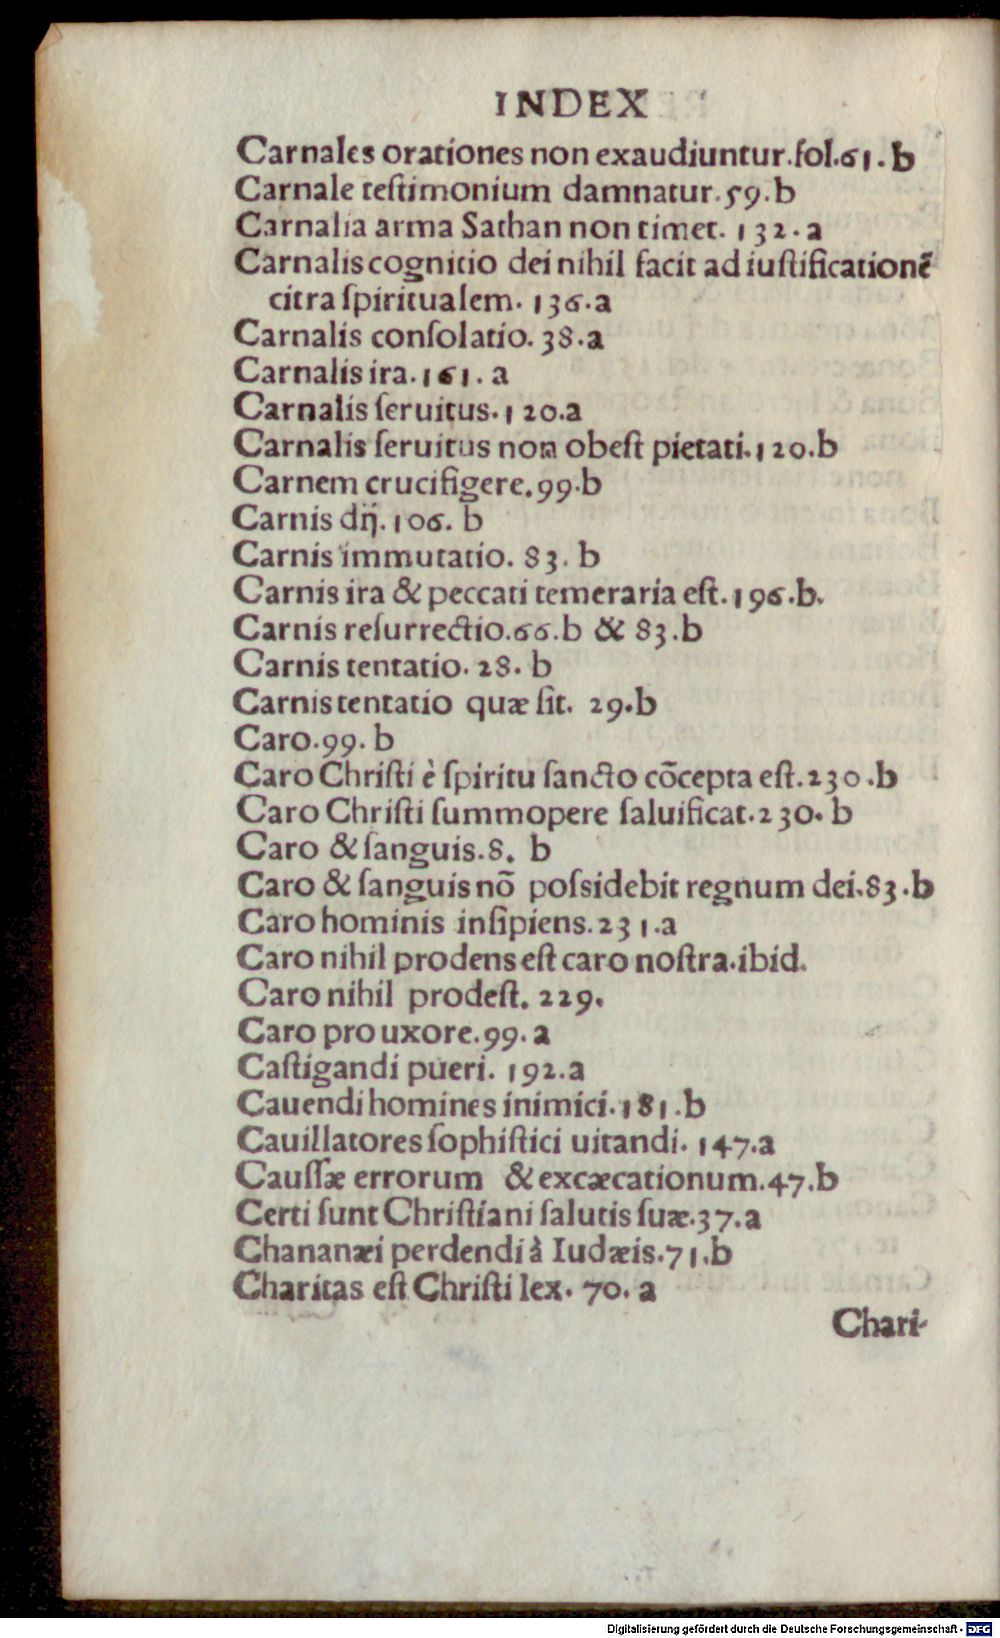 INDEX
Carnales orationes non exaudiuntur.fol.61.b
Carnale teſtimonium damnatur.59.b
Carnalia arma Sathan non timet. 132.a
Carnalis cognitio dei nihil facit ad iuſtificationẽ
citra ſpiritualem. 136.a
Carnalis conſolatio. 38.a
Carnalis ira.161. a
Carnalis ſeruitus.120.a
Carnalis ſeruitus non obeſt pietati.120.b
Carnem crucifigere.99.b
Carnis dij. 106. b
Carnis immutatio. 83. b
Carnis ira & peccati temeraria eſt.196.b.
Carnis reſurrectio.66.b & 83.b
Carnis tentatio. 28. b
Carnis tentatio quæ ſit. 29.b
Caro.99. b
Caro Chriſti è ſpiritu ſancto cõcepta eſt.230.b
Caro Chriſti ſummopere ſaluificat.230. b
Caro & ſanguis.8. b
Caro & ſanguis nõ poſsidebit regnum dei.83.b
Caro hominis inſipiens.231.a
Caro nihil prodens eſt caro noſtra.ibid.
Caro nihil prodeſt. 229.
Caro pro uxore.99. a
Caſtigandi pueri. 192.a
Cauendi homines inimici.181.b
Cauillatores ſophiſtici uitandi. 147.a
Cauſſæ errorum & excæcationum.47.b
Certi ſunt Chriſtiani ſalutis ſuæ.37.a
Chananæi perdendi à Iudæis.71.b
Charitas eſt Chriſti lex. 70. a
Chari-
Digitalisierung gefördert durch die Deutsche Forschungsgemeinschaft - DFG